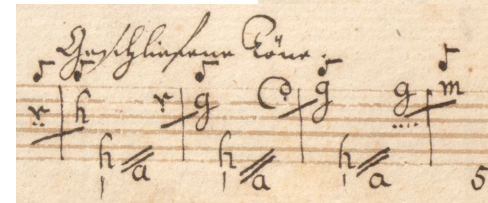 Geschliefene Töne.
r h r g g g m
h a h a h a 5